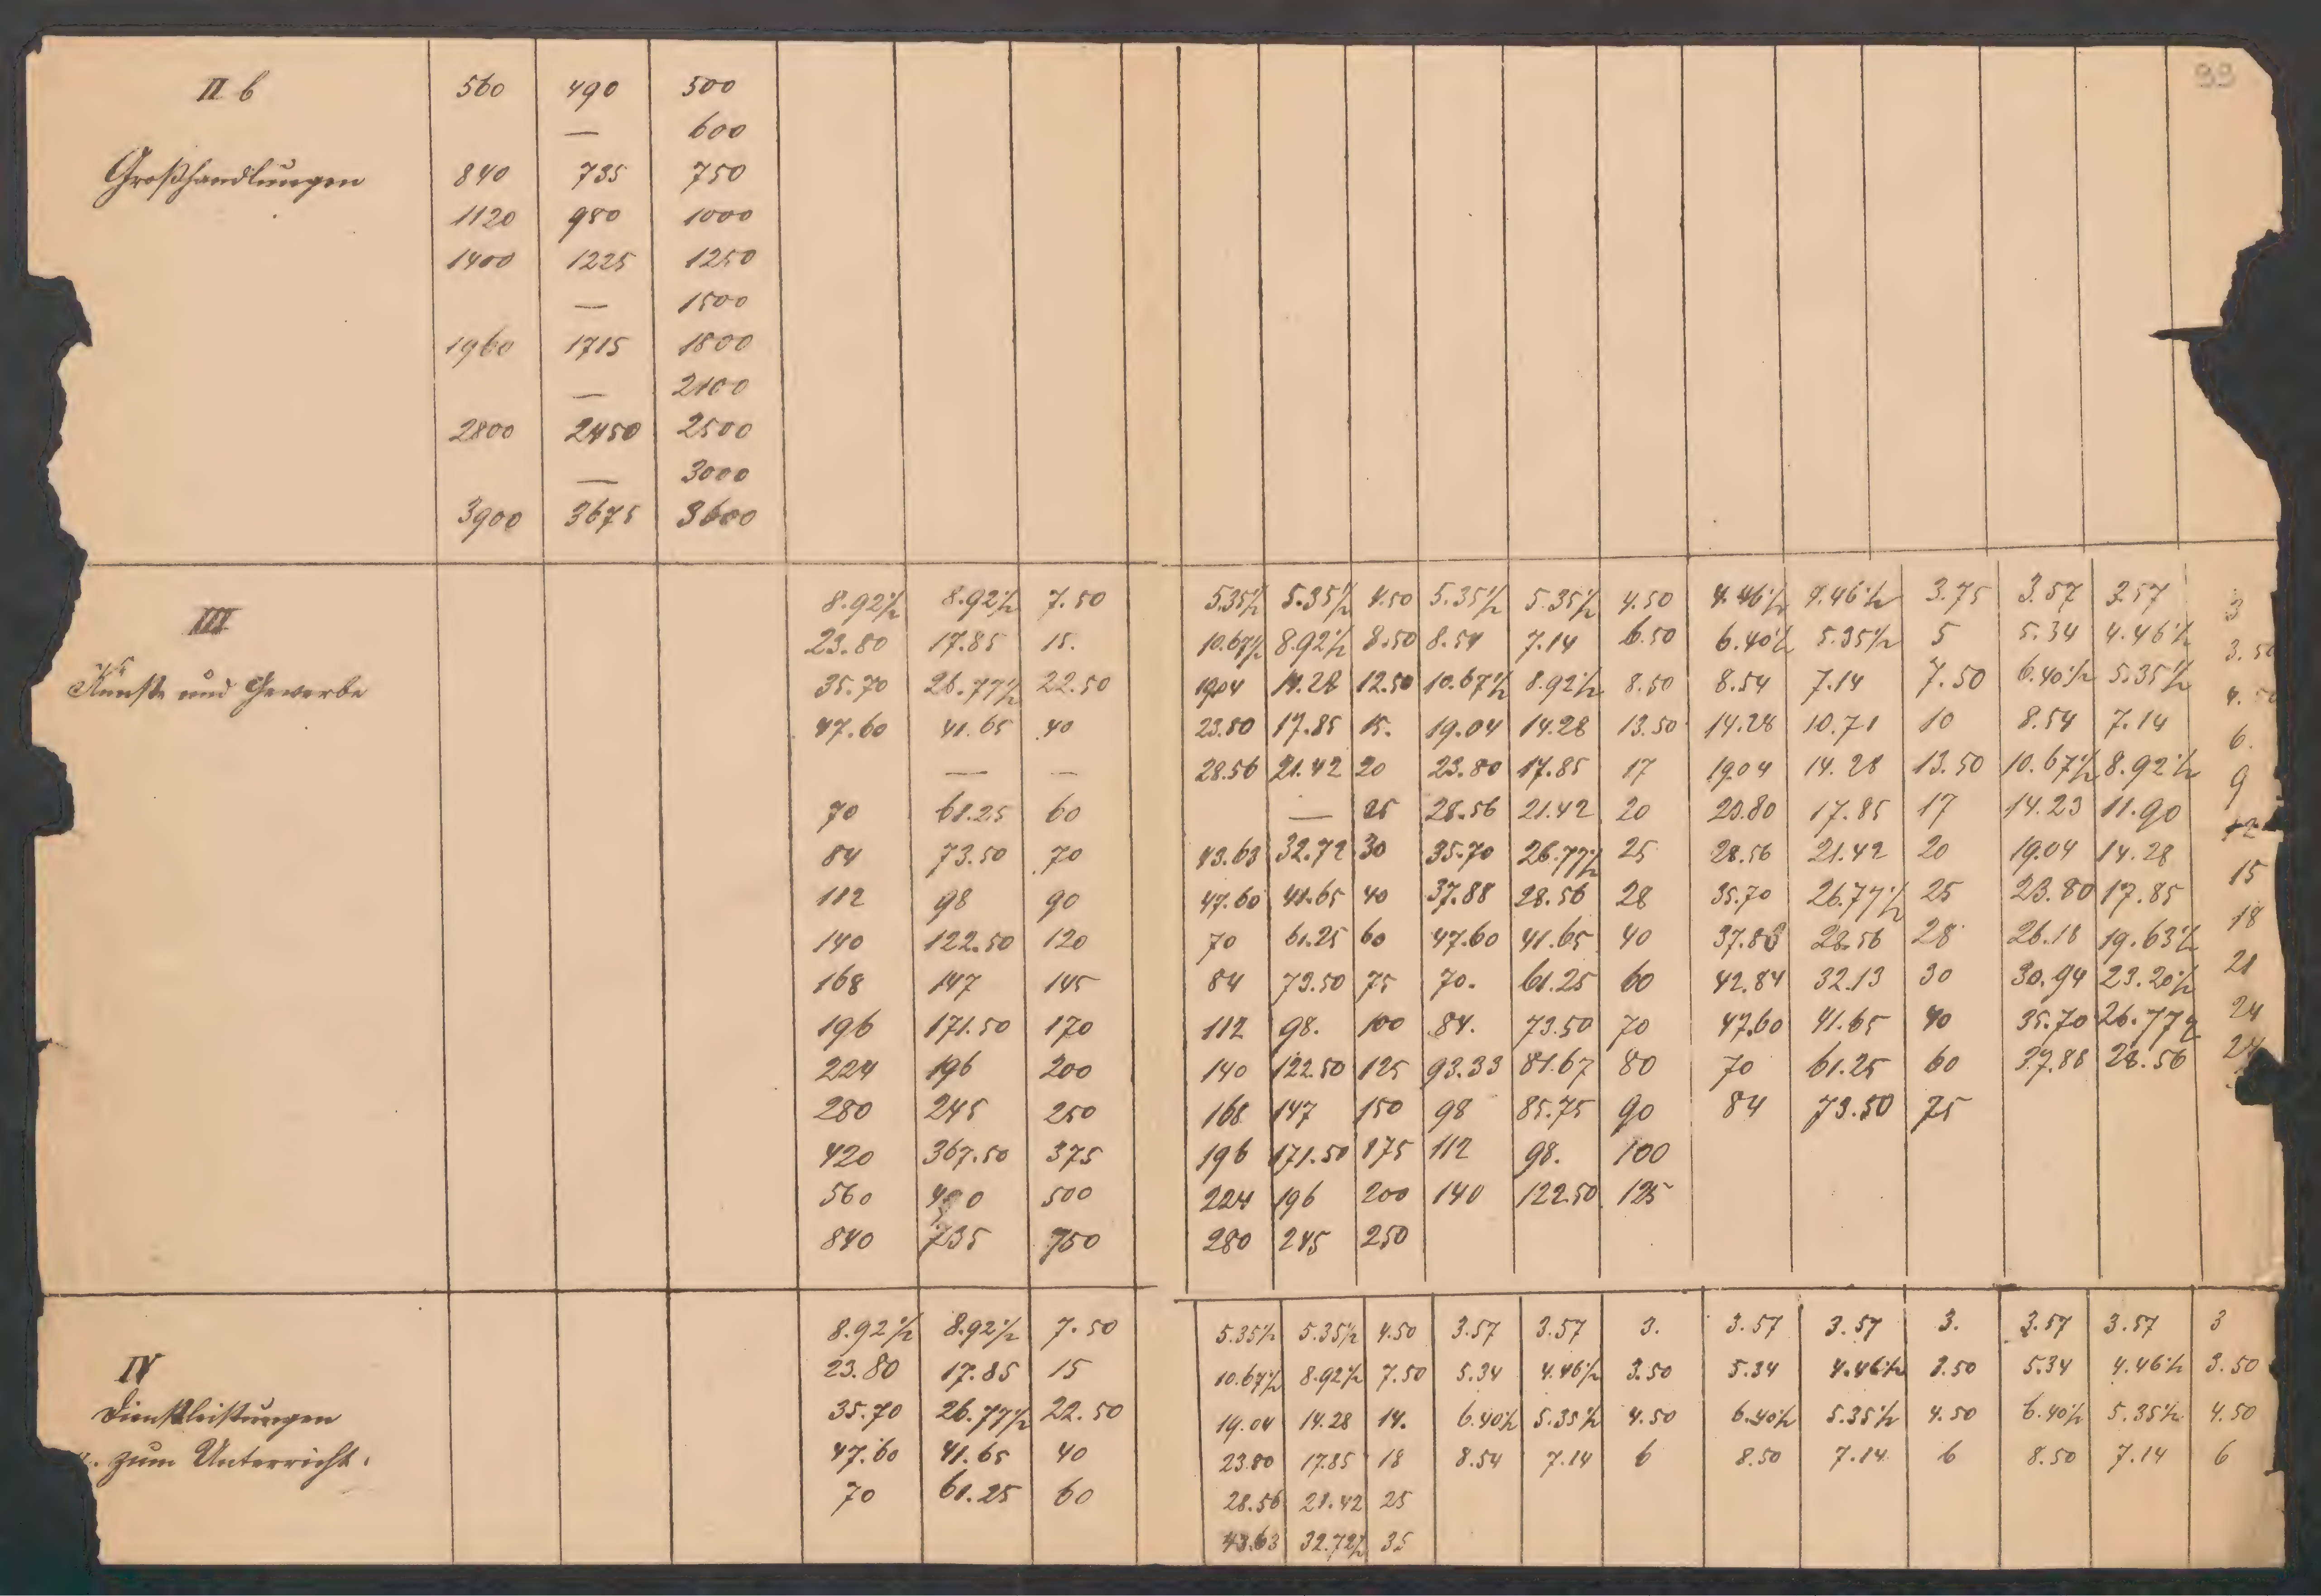 99
II b 560 490 500
— 600
Großhandlungen 840 735 750
1120 980 1000
1400 1225 1250
— 1500
1960 1715 1800
— 2100
2800 2450 2500
— 3000
3900 3675 3600
III 8.92½ 8.92½ 7.50 5.35½ 5.35½ 4.50 5.35½ 5.35½ 4.50 4.46½ 4.46½ 3.75 3.57 3.57 3
23.80 17.85 15. 10.67½ 8.92½ 8.50 8.54 7.14 6.50 6.40½ 5.35½ 5 5.34 4.46½ 3.50
Künste und Gewerbe 35.70 26.77½ 22.50 19.04 14.28 12.50 10.67½ 8.92½ 8.50 8.54 7.14 7.50 6.40½ 5.35½ 4.50
47.60 41.65 40 23.80 17.85 15. 19.04 14.28 13.50 14.28 10.71 10 8.54 7.14 6.
— — 28.56 21.42 20 23.80 17.85 17 19.04 14.28 13.50 10.67½ 8.92½ 9
70 61.25 60 — 25 28.56 21.42 20 23.80 17.85 17 14.23 11.90 12
84 73.50 70 43.63 32.72 30 35.70 26.77½ 25 28.56 21.42 20 19.04 14.28 15
112 98 90 47.60 41.65 40 37.88 28.56 28 35.70 26.77½ 25 23.80 17.85 18
140 122.50 120 70 61.25 60 47.60 41.65 40 37.88 28.56 28 26.18 19.63½ 21
168 147 145 84 73.50 75 70. 61.25 60 42.84 32.13 30 30.94 23.20½ 24
196 171.50 170 112 98. 100 84. 73.50 70 47.60 41.65 40 35.70 26.77½ 24
224 196 200 140 122.50 125 93.33 81.67 80 70 61.25 60 37.88 28.56
280 245 250 168 147 150 98 85.75 90 84 73.50 75
420 367.50 375 196 171.50 175 112 98. 100
560 490 500 224 196 200 140 122.50 125
840 735 750 280 245 250
IV 8.92½ 8.92½ 7.50 5.35½ 5.35½ 4.50 3.57 3.57 3. 3.57 3.57 3. 3.57 3.57 3
23.80 17.85 15 10.67½ 8.92½ 7.50 5.34 4.46½ 3.50 5.34 4.46½ 3.50 5.34 4.46½ 3.50
Dienstleistungen 35.70 26.77½ 22.50 19.04 14.28 14. 6.40½ 5.35½ 4.50 6.40½ 5.35½ 4.50 6.40½ 5.35½ 4.50
zum Unterricht. 47.60 41.65 40 23.80 17.85 18 8.54 7.14 6 8.50 7.14 6 8.50 7.14 6
70 61.25 60 28.56 21.42 25
43.63 32.72½ 35